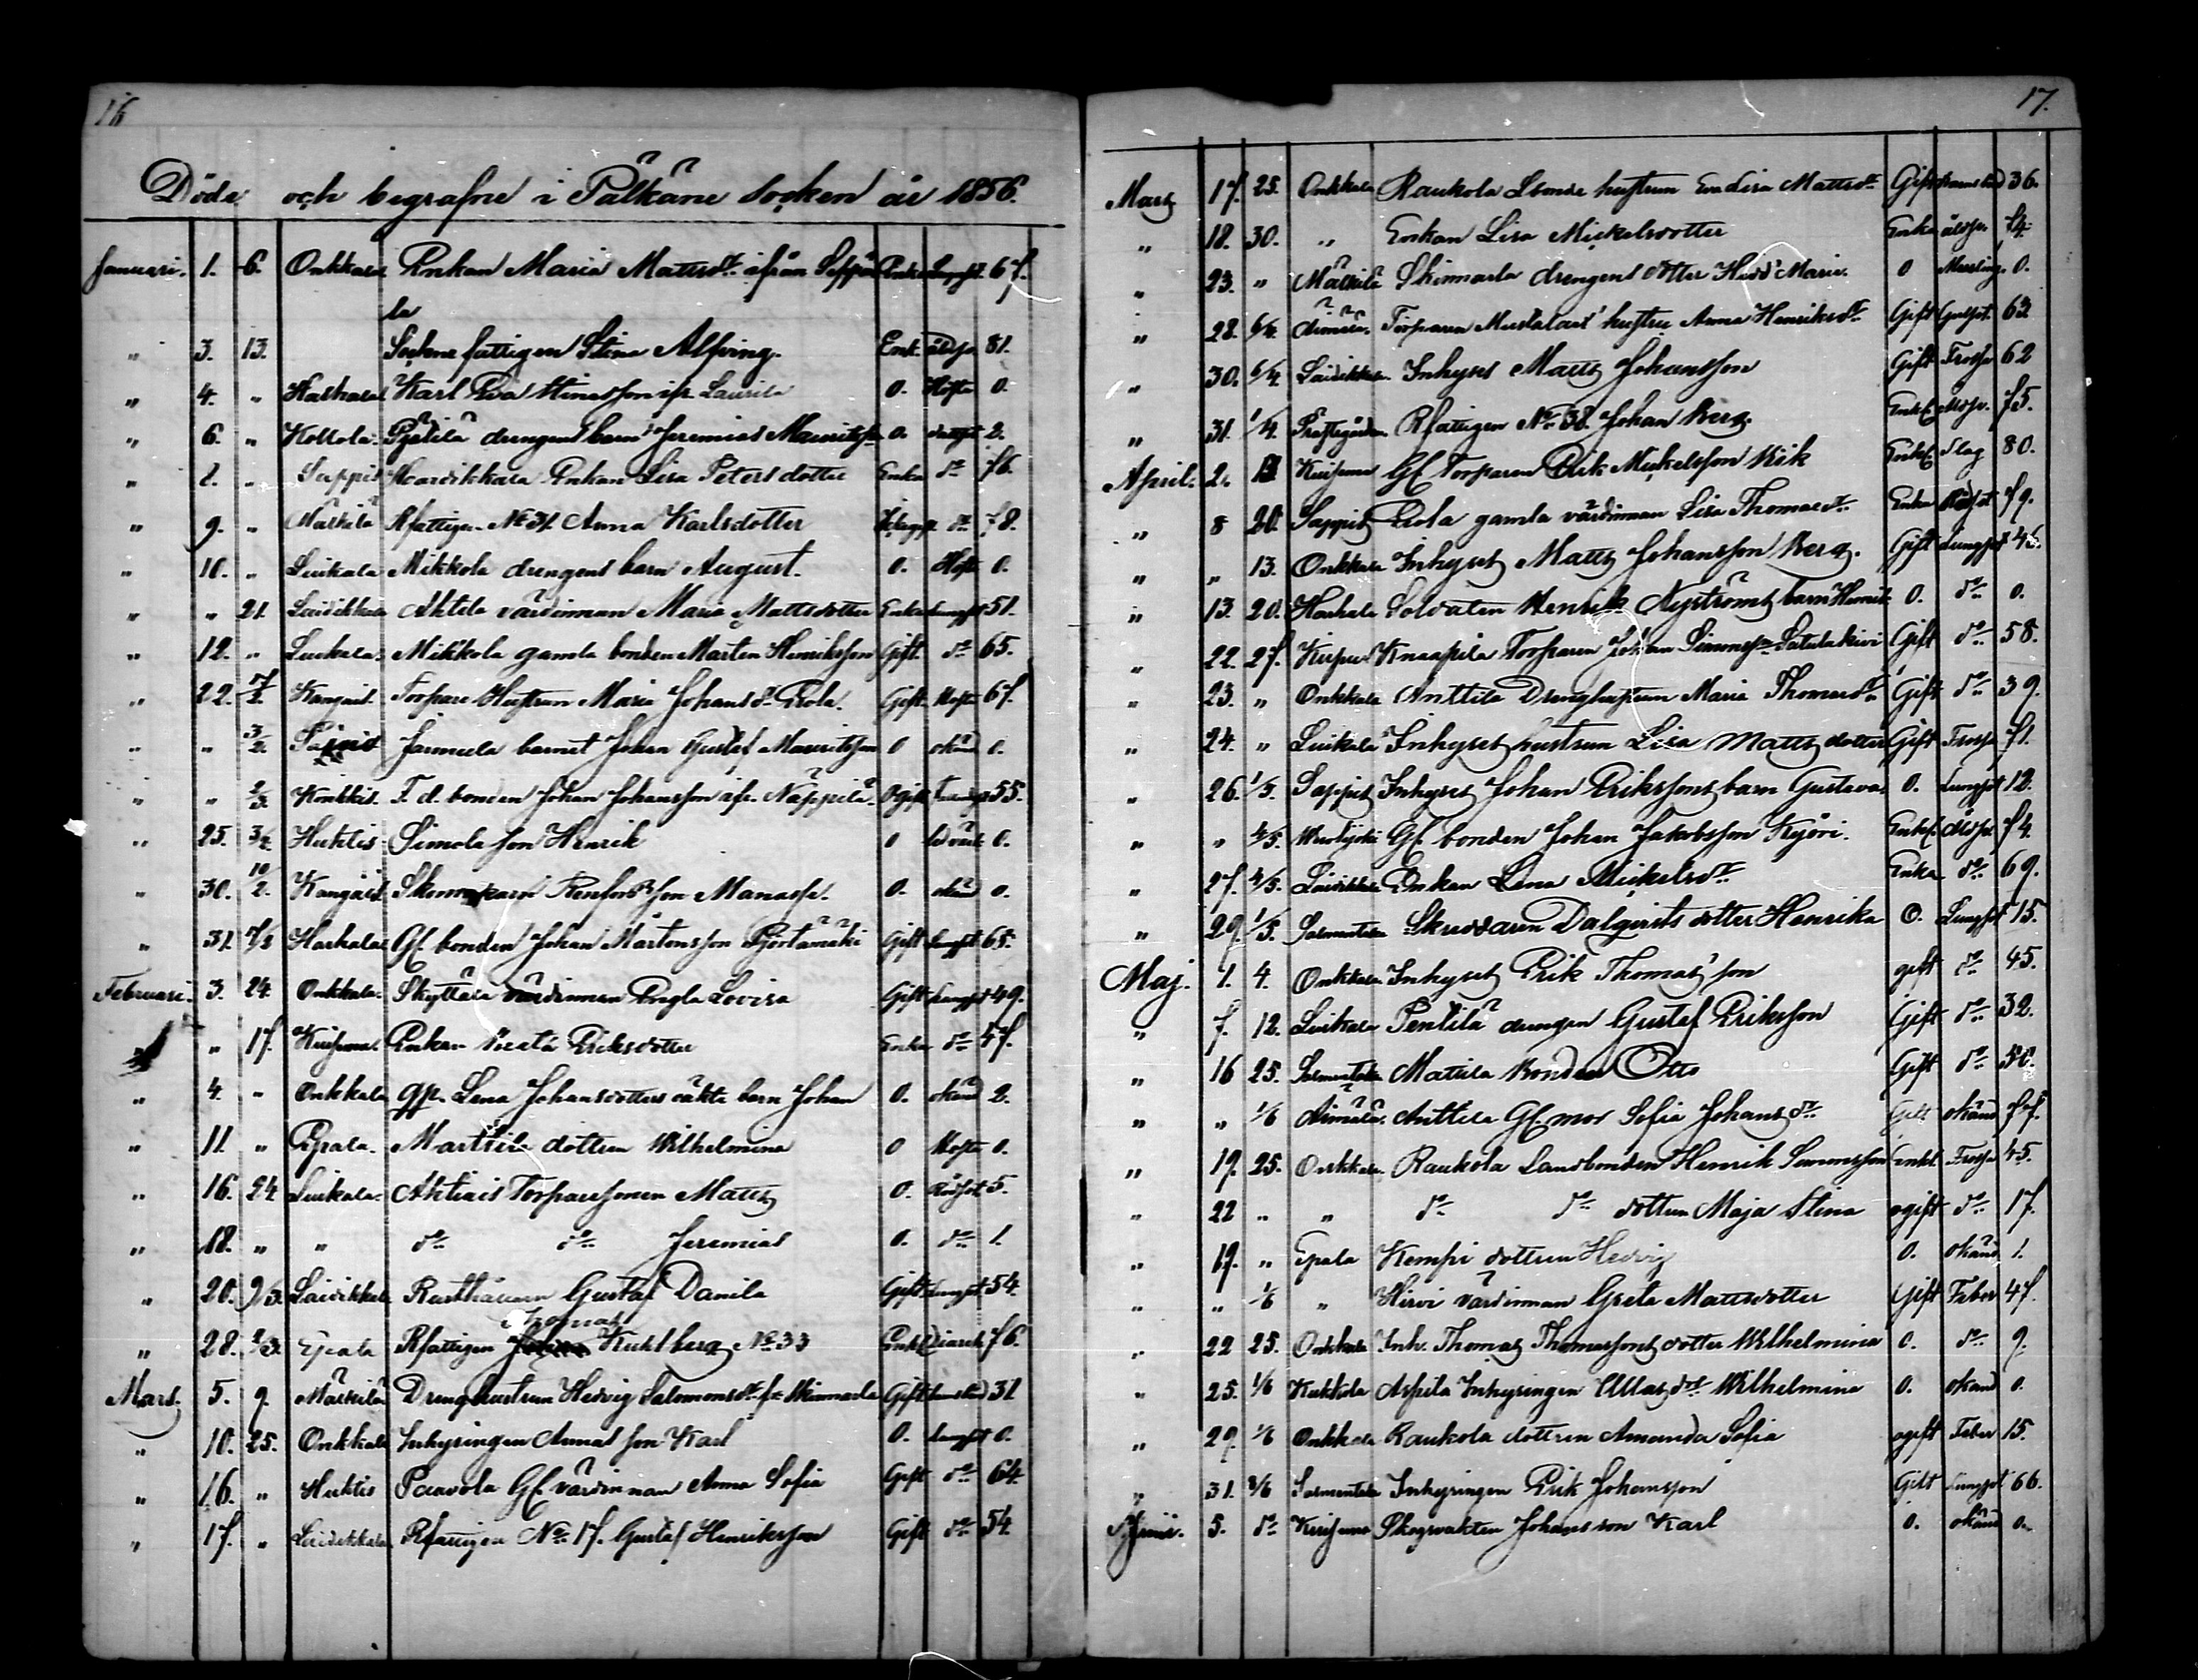 16
Döde och begrafne i Pälkäne Socken år 1856.
Januari. 1. 6. Onkkala Enkan Maria Mattsdr ifrån Seppä Enka Lungsot 67.
la
" 3. 13. Sockne fattigen Stina Alfving. Enk. åldr. 81.
" 4. " Harhala Karl Eva Stinas son ifr. Laurila 0. Hosta 0.
" 6. " Kollola Pjätilä drengens barn Jeremias Mauritsson 0. 2.
" " Sappis Enkan Lisa Petersdotter Enka do 76.
" 9. " Mälkilä Rfattigen No 31 Anna Karlsdotter do 78.
" 10. " Luikala Mikkola drengens barn August. 0. Hosta 0.
" " 21. Laidikkala Ahtila värdinnan Maria Mattsdotter Enka Lungsot 51.
" 12. " Luikala Mikkola gamla bonden Marten Henriksson Gift do 65.
" 22. 17/2. Kangais. Torpare Hustrun Maria Johansdr Erola. Gift Hosta 67.
" " 3/2. Jarmula barnet Johan Gustaf Mauritsson 0 okänd 0.
" " 2/3. Kontkis. F. d. bonden Johan Johansson ifr. Näppilä Ogift 55.
" 25. 3/2. Huhtis Simola son Henrik 0 0.
" 30. 10/2. Kangais. Renfors son Manasse. 0. okänd 0.
" 31. 17/2 Harhala Gl. bonden Johan Mårtensson Pjörtämäki Gift Lungsot 65.
Februari. 3. 24. Onkkala. Skyttälä värdinnan Engla Lovisa Gift Lungsot 49.
" " 17. Kuisema. Enkan Beata Eriksdotter Enka do 47.
" 4. " Onkkala gp. Lena Johansdotters oäkta barn Johan 0. okänd 2.
" 11. " Epala. Marttila dottren Wilhelmina 0 Hosta 0.
" 16. 24 Luikala. Ahtiais Torparesonen Matts 0. Rödsot 5.
" 18. " " do do Jeremias 0. do 1.
" 20. 9/3. Laidikkala Rusthållaren Gustaf Danila Gift Lungsot 54.
Thomas
" 28. 2/3. Epala Rfattigen Kuhlberg No 33 Enkl. 76.
Mars. 5. 9. Mälkilä Dreng hustrun Hedvig Salomonsdr fr. Skinnarla Gift barnsbörd 31
" 10. 25. Onkkala Inhysingen Annas son Karl 0. Lungsot 0.
" 16. " Huhtis Paavola Gl. värdinnan Anna Sofia Gift do 64.
" 17. " Laidikkala Rfattigen No 17. Gustaf Henriksson Gift do 54.
17.
Mars 17. 25. Onkkala Raukola Lbonde hustrun Eva Lisa Mattsdr Gift barnsbörd 36.
" 18. 30. " Enkan Lisa Mickelsdotter Enka åldr. 74.
" 23. " Mälkilä Skinnarla drengens dotter Hedd' Maria. 0 Messling. 0.
" 28. 6/4. Äimälä. Torparen Mustalaas' hustru Anna Henriksdr Gift Gulsot. 63.
" 30. 6/4. Laidikkala. Inhyses Matts Johansson Gift Frossa 62
" 31. 1/4. Prästgården. Rfattigen No 38. Johan Berg. Enkl. åldr. 75.
April. 2. 13 Kuisema Gl. Torparen Erik Mickelsson Kik Enkl. Slag 80.
" 8 20. Sappis Erola gamla värdinnan Lisa Thomasdr Enka 79.
" " 13. Onkkala Inhyses Matts Johansson Berg. Gift Lungsot 46.
" 13. 20. Harhala Soldaten Henrik Nyströms barn Henrik 0. do 0.
" 22. 27. Kuisema Knaapila Torparen Johan Simonsson Satulakivi Gift do 58.
" 23. " Onkkala Anttila Drenghustrun Maria Thomasdr Gift do 39.
" 24. " Luikala Inhyses hustrun Lisa Mattsdotter Gift Frossa 71.
" 26. 1/5. Sappis Inhyses Johan Erikssons barn Gustava 0. Lungsot 12.
" " 4/5. Gl. bonden Johan Jakobsson Kyöri. Enkl. åldr. 74.
" 27. 4/5. Laidikkala Enkan Lena Mickelsdr Enka do 69.
" 29. 1/5. Salmentaka Skreddaren Dalqvists dotter Henrika 0. Lungsot 15.
Maj. 1. 4. Onkkala Inhyses Erik Thomas'son gift do 45.
" 7. 12. Luikala Pentilä drengen Gustaf Eriksson Gift do 32.
" 16 25. Salmentaka Mattila Bonden Otto Gift do 50.
" " 1/6 Äimälä. Anttila Gl. mor Sofia Johansdr Gift okänd 77.
" 19. 25. Onkkala. Raukola Landbonden Henrik Simonsson Enkl. Frossa 45.
" 22 " " do do dottren Maja Stina ogift do 17.
" 19. " Epala Kempi dottren Hedvig 0. okänd 1.
" " 1/6 " Hirvi värdinnan Greta Mattsdotter Gift Feber 47.
" 22 25. Onkkala Inh. Thomas Thomassons dotter Wilhelmina 0. do 9.
" 25. 1/6 Kukkola Arpila Inhysingen Ullas dotr Wilhelmina 0. okänd 0.
" 29. 1/6 Onkkala Raukola dottren Amanda Sofia ogift Feber 15.
" 31. 3/6 Salmentaka Inhysingen Erik Johansson Gift Lungsot 66.
Junii. 5. do Kuisema Skogvakten Johans son Karl 0. okänd 0.